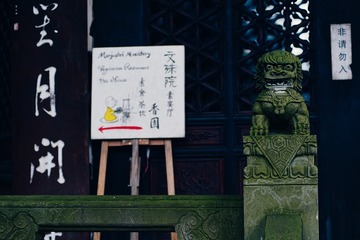 Manjushri Monastery
Vegetarian Restaurant
Tea House
文殊院
素宴厅
香园
素食茶饮
非请勿入
月
開